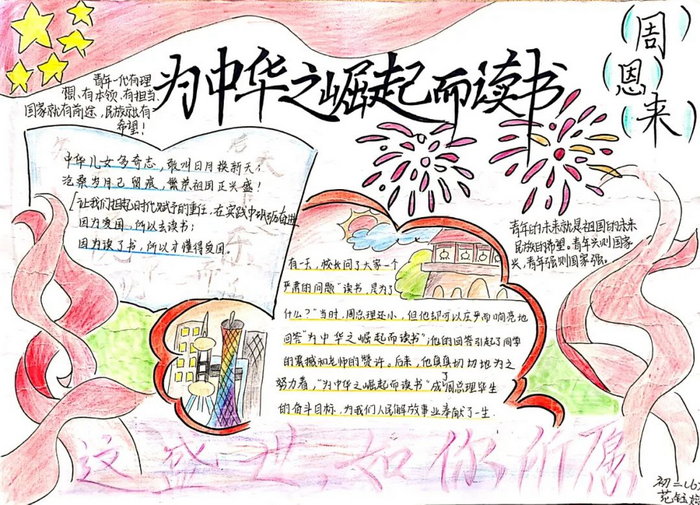 为中华之崛起而读书
周恩来
青年一代有理
想、有本领、有担当,
国家就有前途,民族就有
希望!
中华儿女多奇志,敢叫日月换新天;
沧桑岁月已留痕,繁荣祖国正兴盛!
让我们担起时代赋予的重任,在实践中
因为爱国,所以去读书;
因为读了书,所以才懂得爱国。
有一天,校长问了大家一个
严肃的问题“读书,是为了
什么?”当时,周总理还小,但他却可以庄严而响亮地
回答“为中华之崛起而读书”,他的回答引起了同学
的震撼和老师的赞许。后来,他真真切切地为之
努力着,“为中华之崛起而读书”成了周总理毕生
的奋斗目标,为我们人民解放事业奉献了一生
青年的未来就是祖国的未来
民族的希望。青年兴则国家
兴,青年强则国家强。
这盛世,如你所愿
初二